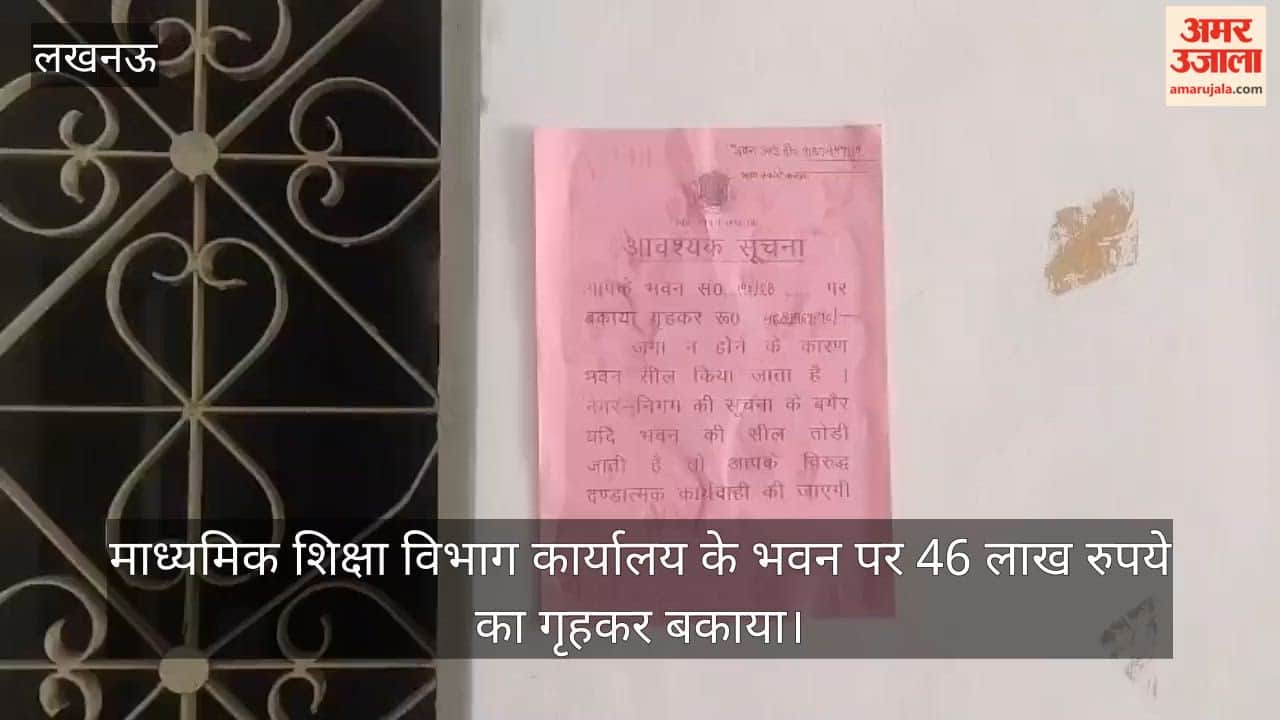 लखनऊ
अमर
उजाला
amarujala.com
आवश्यक सूचना
आपके भवन सं0 पर
बकाया गृहकर रू0
जमा न होने के कारण
भवन सील किया जाता है ।
नगर-निगम की सूचना के बगैर
यदि भवन की सील तोडी
जाती है तो आपके विरुद्ध
दण्डात्मक कार्यवाही की जाएगी
माध्यमिक शिक्षा विभाग कार्यालय के भवन पर 46 लाख रुपये
का गृहकर बकाया।